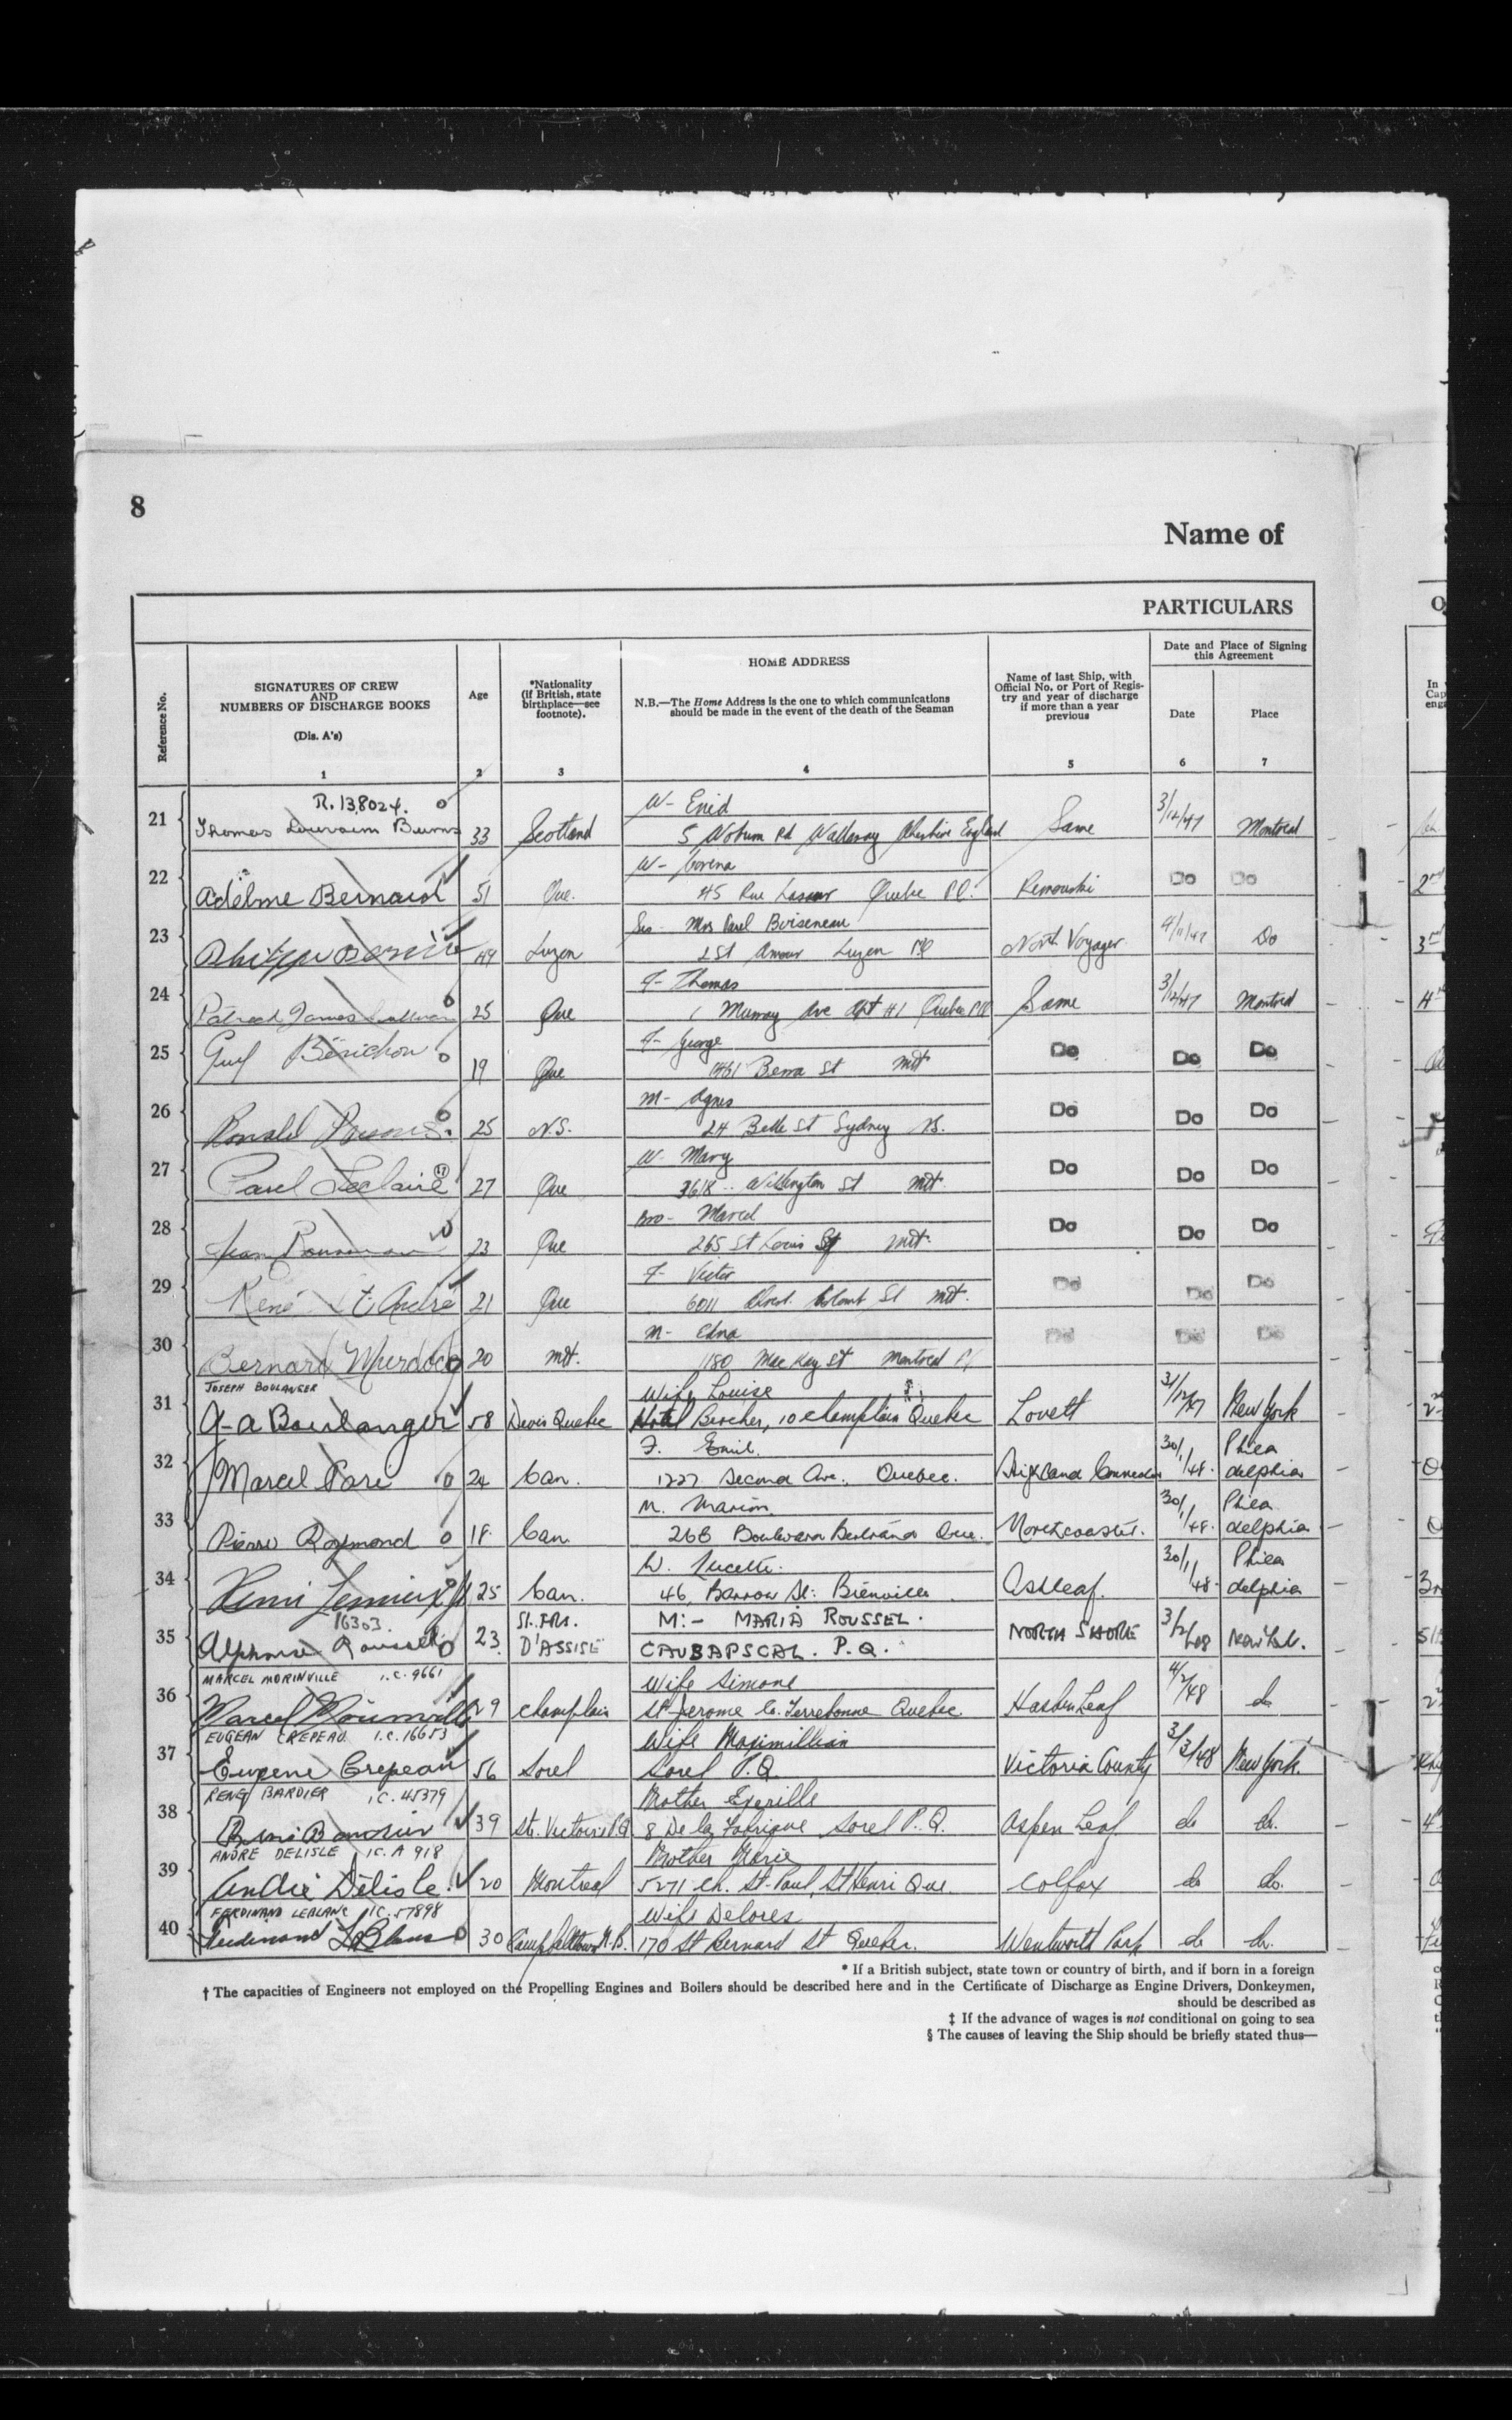 8
Name of
PARTICULARS
Reference No.
SIGNATURES OF CREW
AND
NUMBERS OF DISCHARGE BOOKS
(Dis. A's)
1
Age
2
*Nationality
(if British, state
birthplace—see
footnote).
3
HOME ADDRESS
N.B.—The Home Address is the one to which communications
should be made in the event of the death of the Seaman
4
Name of last Ship, with
Official No. or Port of Regis-
try and year of discharge
if more than a year
previous
5
Date and Place of Signing
this Agreement
Date
6
Place
7
R. 138024. W- Enid
21 Thomas Burns 33 Scotland 5 Woburn Rd Wallasay Cheshire England Same 3/12/47 Montreal
W-
22 Adélme Bernard 51 Que. 45 Rue Quebec P.Q. Rimouski Do Do
Mrs Paul Boiseneau
23 49 Luzon 2 St Amour Luzon PQ North Voyager 4/11/47 Do
F- Thomas
24 Patrick James Sullivan 25 Que 1 Murray Ave Apt #1 Quebec PQ Same 3/12/47 Montreal
F- George
25 Guy Bérichon 19 Que St Mtl Do Do Do
M- Agnes
26 Ronald 25 N.S. 24 Belle St Sydney NS. Do Do Do
W- Mary
27 Paul Leclaire 27 Que 3618 Wellington St Mtl Do Do Do
Bro- Marcel
28 Jean 23 Que 265 St Louis Sq Mtl Do Do Do
F- Victor
29 René St. André 21 Que 6011 St Mtl. Do Do Do
M- Edna
30 Bernard Murdock 20 Mtl. 1180 MacKay St Montreal Do Do Do
JOSEPH BOULANGER Wife Louise
31 A-a Boulanger 58 Quebec Hotel Bercher, 10 Champlain Quebec Lovett 31/12/47 New York
F. Emil.
32 Marcel Paré 24 Can. 1227 Second Ave., Quebec. 30/1/48. Philadelphia
M. Marion.
33 Pierre Raymond 18 Can. 268 Boulevard Bertrand Que. Northcoaster. 30/1/48. Philadelphia
W. Lucette.
34 Remi Lemieux 25 Can. 46, Barrow St: Bienville. Ashleaf. 30/1/48. Philadelphia
16303. ST. FRS. M:- MARIA ROUSSEL.
35 Alphonse Roussel 23. D'ASSISE CAUBAPSCAL. P.Q. NORTH SHORE 3/2/48
MARCEL MORINVILLE I.C. 9661 Wife Simone
36 Marcel Morinville 29 Champlain St-Jerome Co. Terrebonne Quebec 4/2/48 do
EUGEAN CREPEAU I.C. 16653 Wife Maximillian
37 Eugene Crepeau 56 Sorel Sorel P.Q. Victoria County 3/3/48 New York.
RENE BARDIER I.C. 45379 Mother Exerille
38 39 Ste. Victoire P.Q 8 De la Fabrique Sorel P.Q. Aspen Leaf do do.
ANDRE DELISLE I.C. A 918 Mother Marie
39 André Délisle. 20 Montreal 5271 ch. St-Paul, St Henri Que. Colfax do do.
FERDINAND LEBLANC I.C. 57898 Wife Delores
40 Ferdinand LeBlanc 30 Campbelltown N.B. 170 St Bernard St Quebec. Wentworth Park do do.
* If a British subject, state town or country of birth, and if born in a foreign
† The capacities of Engineers not employed on the Propelling Engines and Boilers should be described here and in the Certificate of Discharge as Engine Drivers, Donkeymen,
should be described as
‡ If the advance of wages is not conditional on going to sea
§ The causes of leaving the Ship should be briefly stated thus—